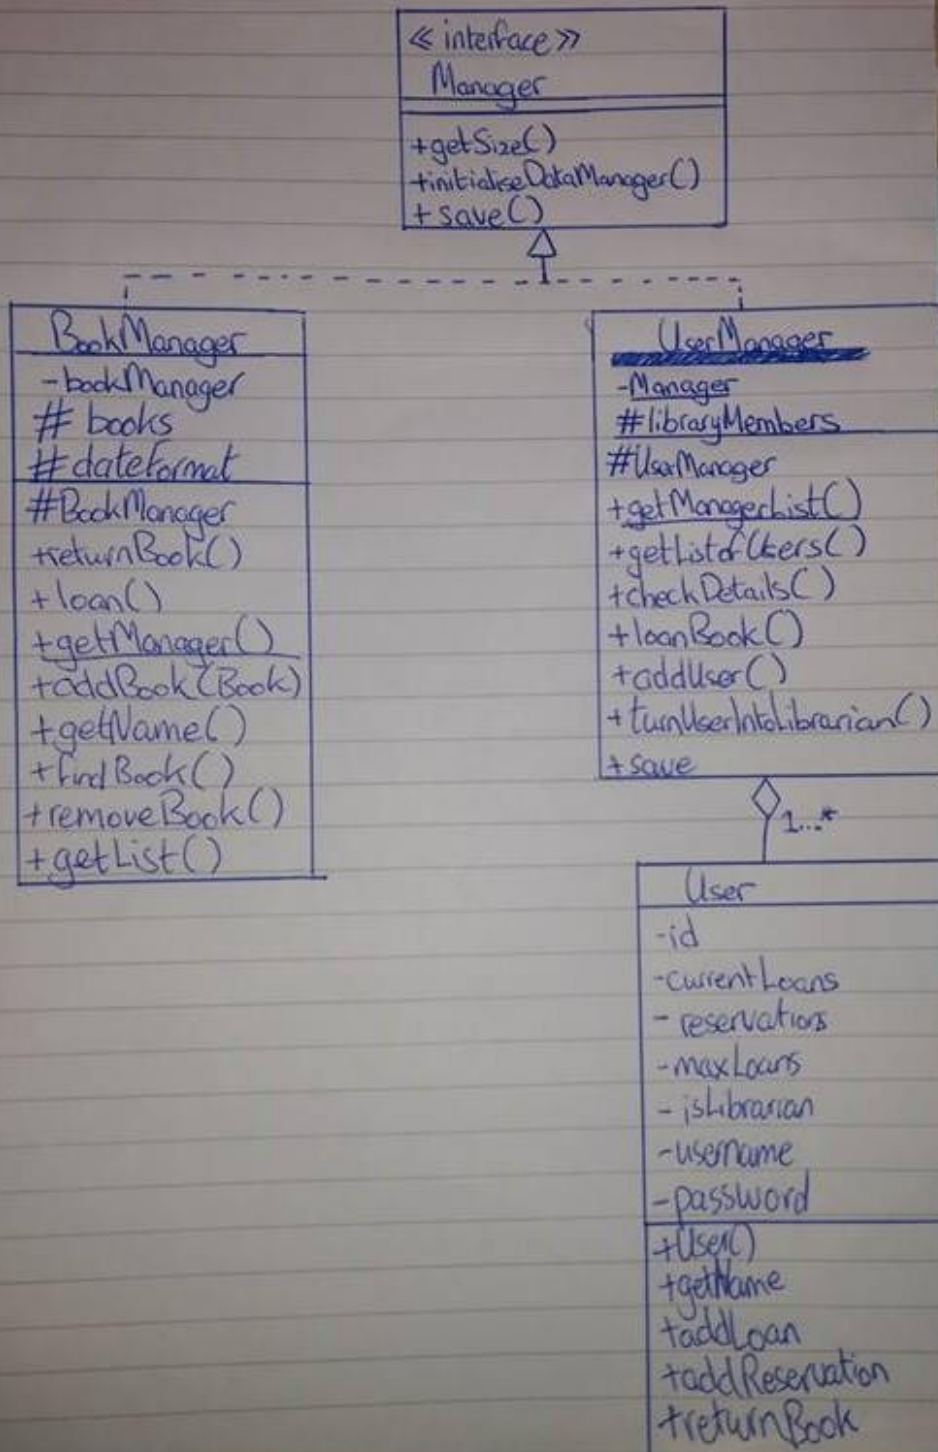 ≪ interface ≫
Manager
+getSize()
+initialiseDataManager()
+ save()
BookManager
-bookManager
# books
# dateFormat
#BookManager
+returnBook()
+ loan()
+getManager()
+addBook(Book)
+getName()
+findBook()
+removeBook()
+getList()
UserManager
-Manager
#libraryMembers
#UserManager
+getManagerList()
+getListofUsers()
+checkDetails()
+loanBook()
+addUser()
+turnUserIntoLibrarian()
+save
1...*
User
-id
-currentLoans
- reservations
-maxLoans
- isLibrarian
-username
-password
+User()
+getName
+addLoan
+addReservation
+returnBook